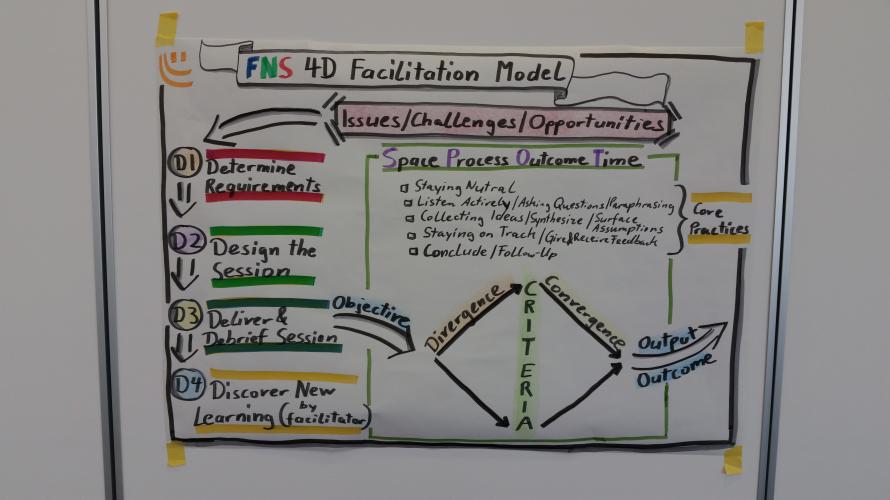 FNS 4D Facilitation Model
Issues/Challenges/Opportunities
D1 Determine
Requirements
D2 Design the
Session
D3 Deliver &
Debrief Session
D4 Discover New
Learning (by facilitator)
Space Process Outcome Time
Staying Nutral
Listen Actively/Asking Questions/Paraphrasing
Collecting Ideas/Synthesize/Surface
Assumptions
Staying on Track/Give&Receive Feedback
Conclude/Follow-Up
Core
Practices
Objective
Divergence
CRITERIA
Convergence
Output
Outcome